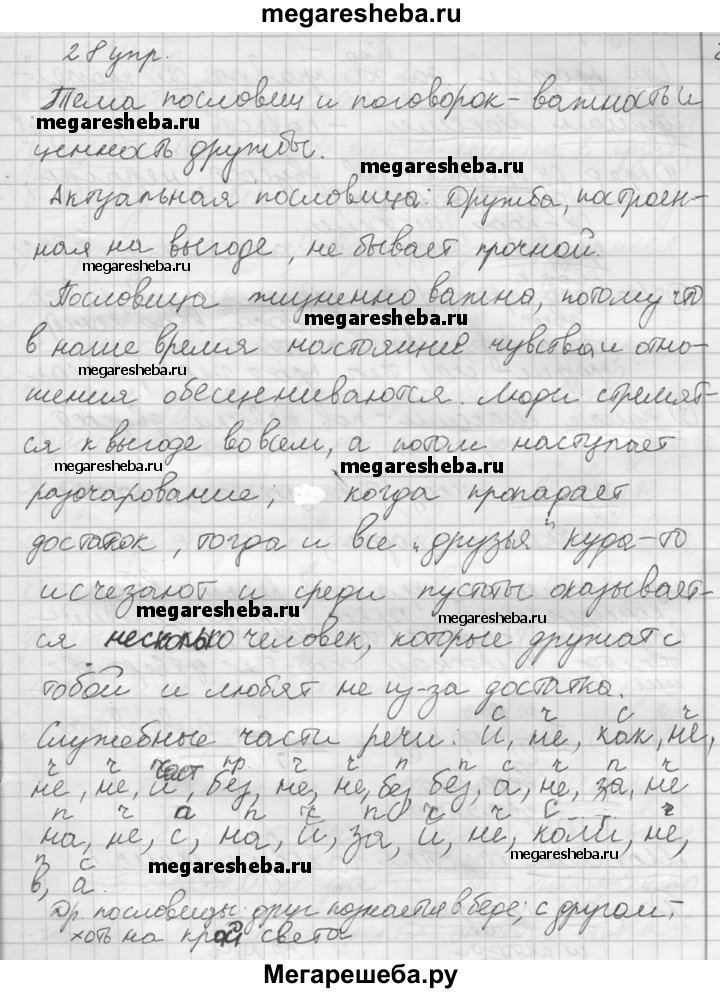 megaresheba.ru
28 упр.
Тема пословиц и поговорок - важность и
megaresheba.ru
ценность дружбы.
megaresheba.ru
Актуальная пословица: Дружба, построен-
ная на выгоде, не бывает прочной.
megaresheba.ru
Пословица жизненно важна, потому что
megaresheba.ru
в наше время настоящие чувства и отно-
megaresheba.ru
шения обесцениваются. Люди стремят-
ся к выгоде во всем, а потом наступает
megaresheba.ru megaresheba.ru
разочарование; когда пропадает
достаток, тогда и все „друзья" куда-то
исчезают и среди пустоты оказывает-
megaresheba.ru megaresheba.ru
ся несколько человек, которые дружат с
тобой и любят не из-за достатка.
с ч с ч
Служебные части речи: И, не, как, не,
ч ч част пр. ч ч п п с ч п ч
не, не, и, без, не, не, без, без, а, не, за, не
п ч п ч п ч ч с ч
на, не, с, на, и, за, и, не, коли, не,
п с
в, а.
megaresheba.ru megaresheba.ru
Др. пословицы: друг познается в беде; с другом -
хоть на край света
Мегарешеба.ру